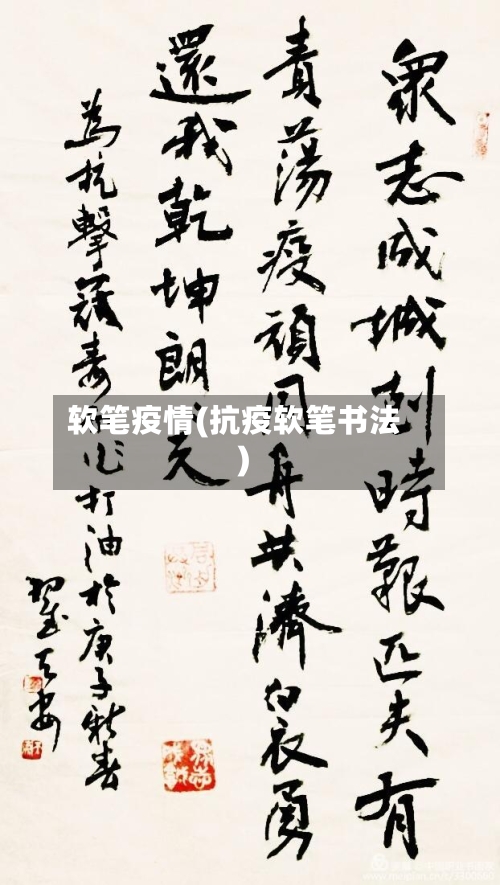 眾志成城剋時艱匹夫有
責蕩疫頑同舟共濟白衣勇
還我乾坤朗天
為抗擊冠毒作打油於庚子新春
软笔疫情(抗疫软笔书法
)